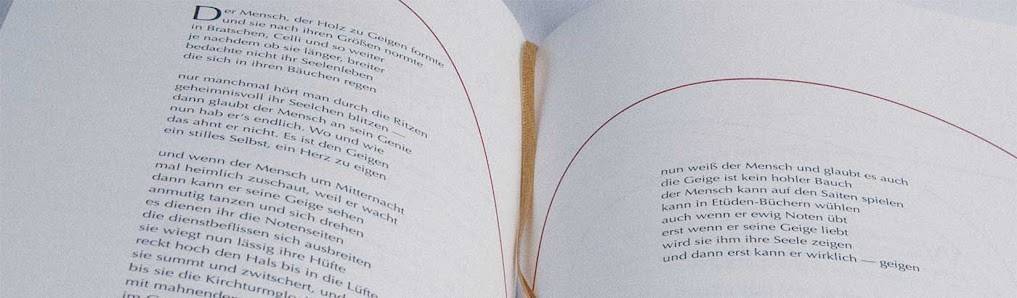 Der Mensch, der Holz zu Geigen formte
und sie nach ihren Größen normte
in Bratschen, Celli und so weiter
je nachdem ob sie länger, breiter
bedachte nicht ihr Seelenleben
die sich in ihren Bäuchen regen
nur manchmal hört man durch die Ritzen
geheimnisvoll ihr Seelchen blitzen —
dann glaubt der Mensch an sein Genie
nun hab er's endlich. Wo und wie
das ahnt er nicht. Es ist den Geigen
ein stilles Selbst, ein Herz zu eigen
und wenn der Mensch um Mitternacht
mal heimlich zuschaut, weil er wacht
dann kann er seine Geige sehen
anmutig tanzen und sich drehen
es dienen ihr die Notenseiten
die dienstbeflissen sich ausbreiten
sie wiegt nun lässig ihre Hüfte
reckt hoch den Hals bis in die Lüfte
sie summt und zwitschert, und
bis sie die
mit mahnenden
nun weiß der Mensch und glaubt es auch
die Geige ist kein hohler Bauch
der Mensch kann auf den Saiten spielen
kann in Etüden-Büchern wühlen
auch wenn er ewig Noten übt
erst wenn er seine Geige liebt
wird sie ihm ihre Seele zeigen
und dann erst kann er wirklich — geigen